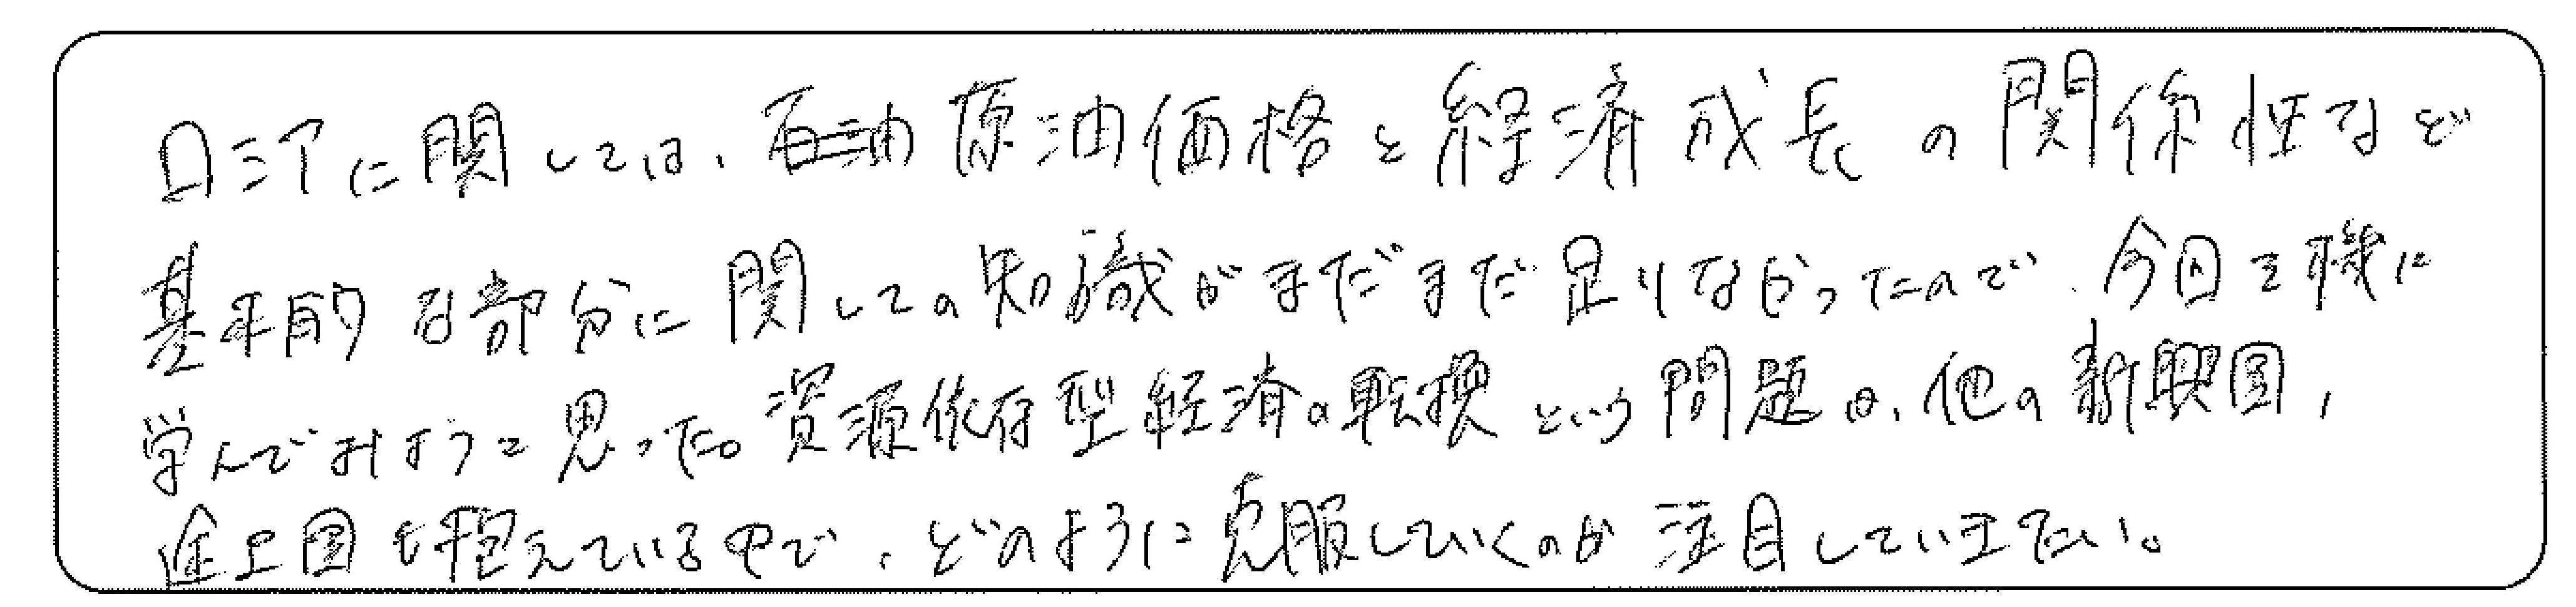 ロシアに関しては、原油価格と経済成長の関係性など
基本的な部分に関しての知識がまだまだ足りなかったので、今回を機に
学んでみようと思った。資源依存型経済の転換という問題は、他の新興国,
途上国も抱えている中で、どのように克服していくのか注目していきたい。